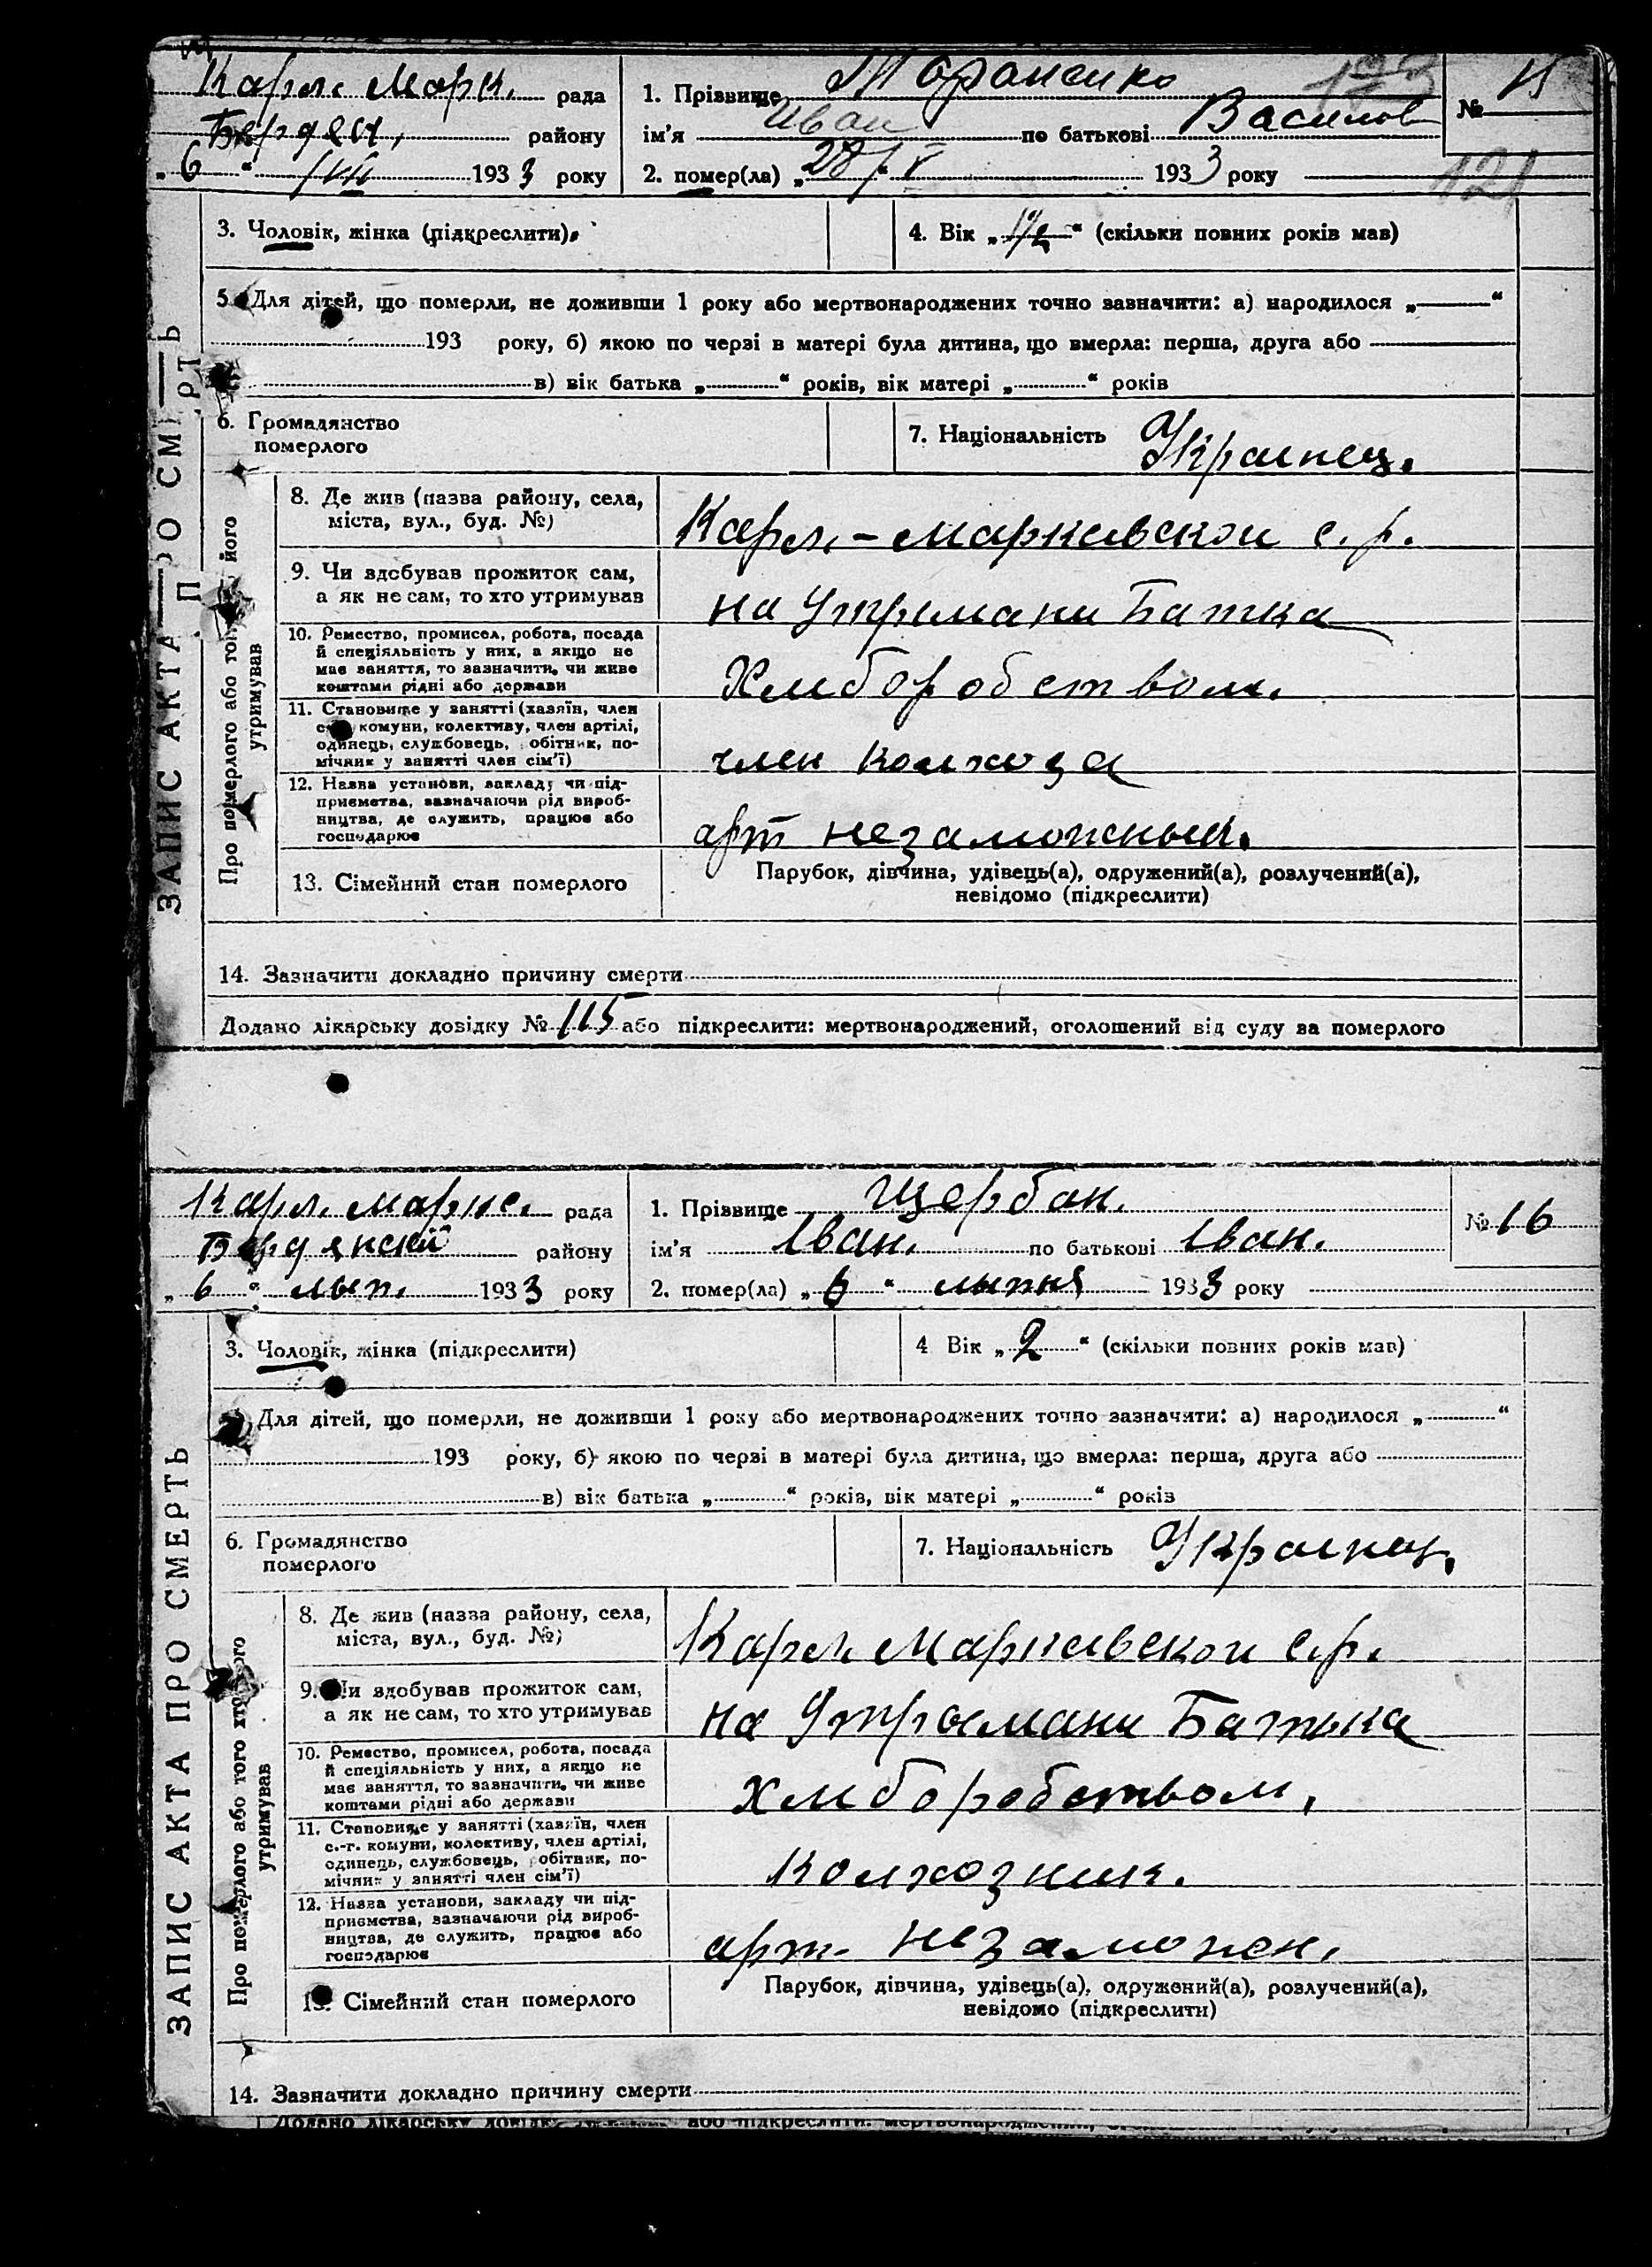 Карл. Марк. рада
Бердян. району
„ 6 “ /VII 1933 року
1. Прізвище Тараненко
ім'я Иван по батькові Василов
2. помер(ла) „ 28/ “ V 1933 року
№ 15
121
3. Чоловік, жінка (підкреслити).
4. Вік „ “ (скільки повних років мав)
5. Для дітей, що померли, не доживши 1 року або мертвонароджених точно зазначити: а) народилося „ “
193 року, б) якою по черзі в матері була дитина, що вмерла: перша, друга або
в) вік батька „ “ років, вік матері „ “ років
6. Громадянство
померлого
7. Національність Украинец.
ЗАПИС АКТА ПРО СМЕРТЬ
Про померлого або того його
утримував
8. Де жив (назва району, села,
міста, вул., буд. №)
Карл.-Маркивскои с. р.
9. Чи здобував прожиток сам,
а як не сам, то хто утримував
на Утримани Батка
10. Ремество, промисел, робота, посада
й спеціяльність у них, а якщо не
має заняття, то зазначити, чи живе
коштами рідні або держави
Хлиборобством.
11. Становище у занятті (хазяїн, член
с комуни, колективу, член артілі,
одинець, службовець, обітник, по-
мічник у занятті член сім'ї)
член колхоза
12. Назва установи, закладу чи під-
приємства, зазначаючи рід вироб-
ництва, де служить, працює або
господарює
арт незаможный.
13. Сімейний стан померлого
Парубок, дівчина, удівець(а), одружений(а), розлучений(а),
невідомо (підкреслити)
14. Зазначити докладно причину смерти
Додано лікарську довідку № 115 або підкреслити: мертвонароджений, оголошений від суду за померлого
Карл. маркс. рада
Бердянский району
„ 6 “ лып. 1933 року
1. Прізвище Щербак.
ім'я Іван. по батькові Іван.
2. помер(ла) „ 6 “ лыпня 1933 року
№ 16
3. Чоловік, жінка (підкреслити)
4 Вік „ 2 “ (скільки повних років мав)
Для дітей, що померли, не доживши 1 року або мертвонароджених точно зазначити: а) народилося „ “
193 року, б) якою по черзі в матері була дитина, що вмерла: перша, друга або
в) вік батька „ “ років, вік матері „ “ років
6. Громадянство
померлого
7. Національність Украинец.
ЗАПИС АКТА ПРО СМЕРТЬ
Про померлого або того хто його
утримував
8. Де жив (назва району, села,
міста, вул., буд. №)
Карл. Маркивскои с.р.
9. Чи здобував прожиток сам,
а як не сам, то хто утримував
на Утрымани Батька
10. Ремество, промисел, робота, посада
й спеціяльність у них, а якщо не
має заняття, то зазначити, чи живе
коштами рідні або держави
хлиборобством,
11. Становище у занятті (хазяїн, член
с.-г. комуни, колективу, член артілі,
одинець, службовець, обітник, по-
мічник у занятті член сім'ї)
колхозник.
12. Назва установи, закладу чи під-
приємства, зазначаючи рід вироб-
ництва, де служить, працює або
господарює
арт. незаможн.
13. Сімейний стан померлого
Парубок, дівчина, удівець(а), одружений(а), розлучений(а),
невідомо (підкреслити)
14. Зазначити докладно причину смерти
Додано лікарську довідку або підкреслити: мертвонароджений,